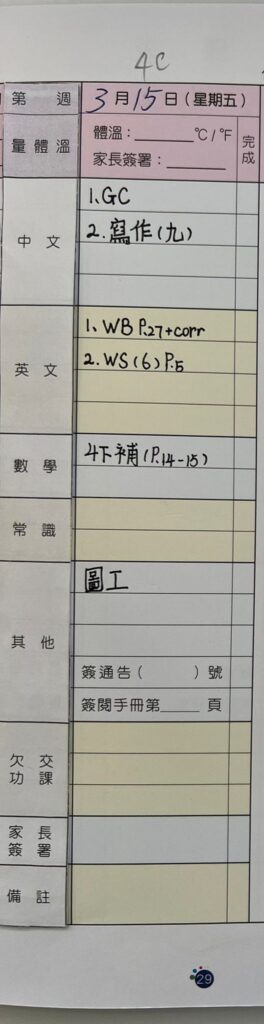 4C
第 週 3月15日(星期五)
量體溫 體溫:______℃/℉ 完成
家長簽署:______
中文 1.GC
2.寫作(九)
英文 1.WB P.27+corr
2.WS(6)P.5
數學 4下補(P.14-15)
常識
其他 圖工
簽通告( )號
簽閱手冊第_____頁
欠交功課
家長簽署
備註
29